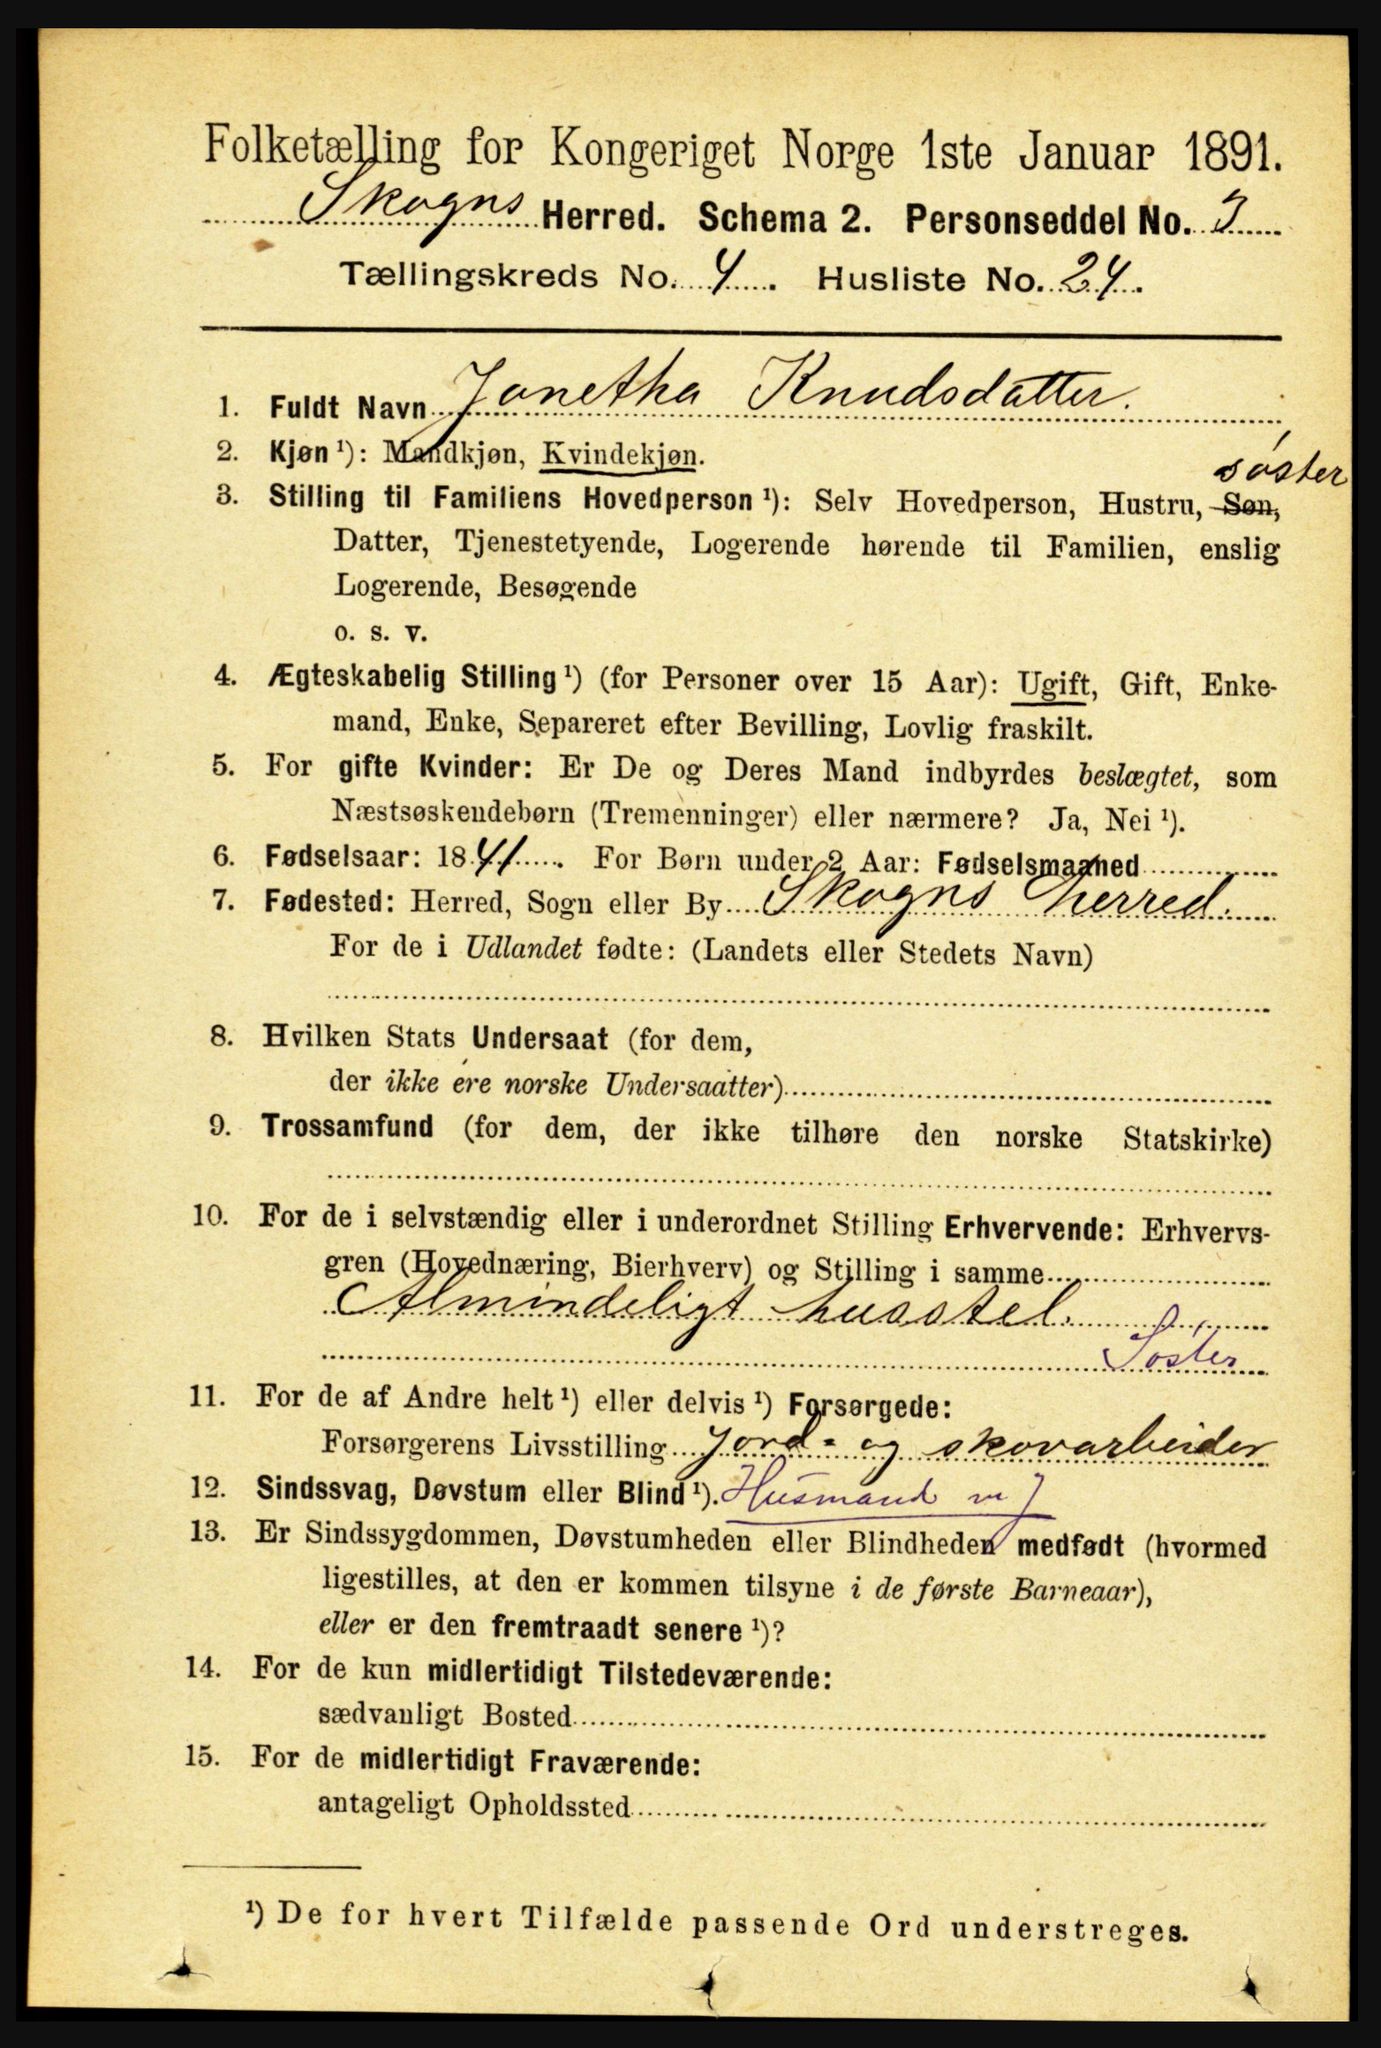 Folketælling for Kongeriget Norge 1ste Januar 1891.
Skogns Herred. Schema 2. Personseddel No. 3
Tællingskreds No. 4. Husliste No. 24.
1. Fuldt Navn Jonetha Knudsdatter.
2. Kjøn ¹): Mandkjøn, Kvindekjøn.
søster
3. Stilling til Familiens Hovedperson ¹): Selv Hovedperson, Hustru, Søn,
Datter, Tjenestetyende, Logerende hørende til Familien, enslig
Logerende, Besøgende
o. s. v.
4. Ægteskabelig Stilling ¹) (for Personer over 15 Aar): Ugift, Gift, Enke-
mand, Enke, Separeret efter Bevilling, Lovlig fraskilt.
5. For gifte Kvinder: Er De og Deres Mand indbyrdes beslægtet, som
Næstsøskendebørn (Tremenninger) eller nærmere? Ja, Nei ¹).
6. Fødselsaar: 1841. For Børn under 2 Aar: Fødselsmaaned
7. Fødested: Herred, Sogn eller By Skogns herred.
For de i Udlandet fødte: (Landets eller Stedets Navn)
8. Hvilken Stats Undersaat (for dem,
der ikke ere norske Undersaatter)
9. Trossamfund (for dem, der ikke tilhøre den norske Statskirke)
10. For de i selvstændig eller i underordnet Stilling Erhvervende: Erhvervs-
gren (Hovednæring, Bierhverv) og Stilling i samme
Almindeligt husstel.
Søster
11. For de af Andre helt ¹) eller delvis ¹) Forsørgede:
Forsørgerens Livsstilling Jord- og skovarbeider
12. Sindssvag, Døvstum eller Blind ¹). Husmand m J
13. Er Sindssygdommen, Døvstumheden eller Blindheden medfødt (hvormed
ligestilles, at den er kommen tilsyne i de første Barneaar),
eller er den fremtraadt senere ¹)?
14. For de kun midlertidigt Tilstedeværende:
sædvanligt Bosted
15. For de midlertidigt Fraværende:
antageligt Opholdssted
¹) De for hvert Tilfælde passende Ord understreges.